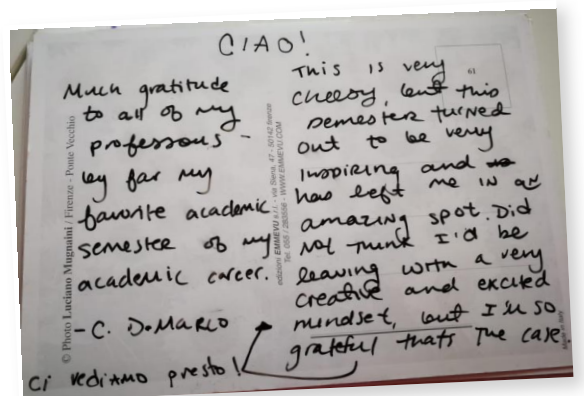 CIAO!
Much gratitude
to all of my
professors -
by far my
favorite academic
semester of my
academic career.
- C. DeMarco
Ci vediamo presto!
This is very
cheesy, but this
semester turned
out to be very
inspiring and
has left me in an
amazing spot. Did
not think I'd be
leaving with a very
creative and excited
mindset, but I'm so
grateful thats the case.
61
© Photo Luciano Mugnaini / Firenze - Ponte Vecchio
edizioni EMMEVU s.r.l. - via Siena, 47 - 50142 firenze
Tel. 055 / - WWW.EMMEVU.COM
Made in Italy